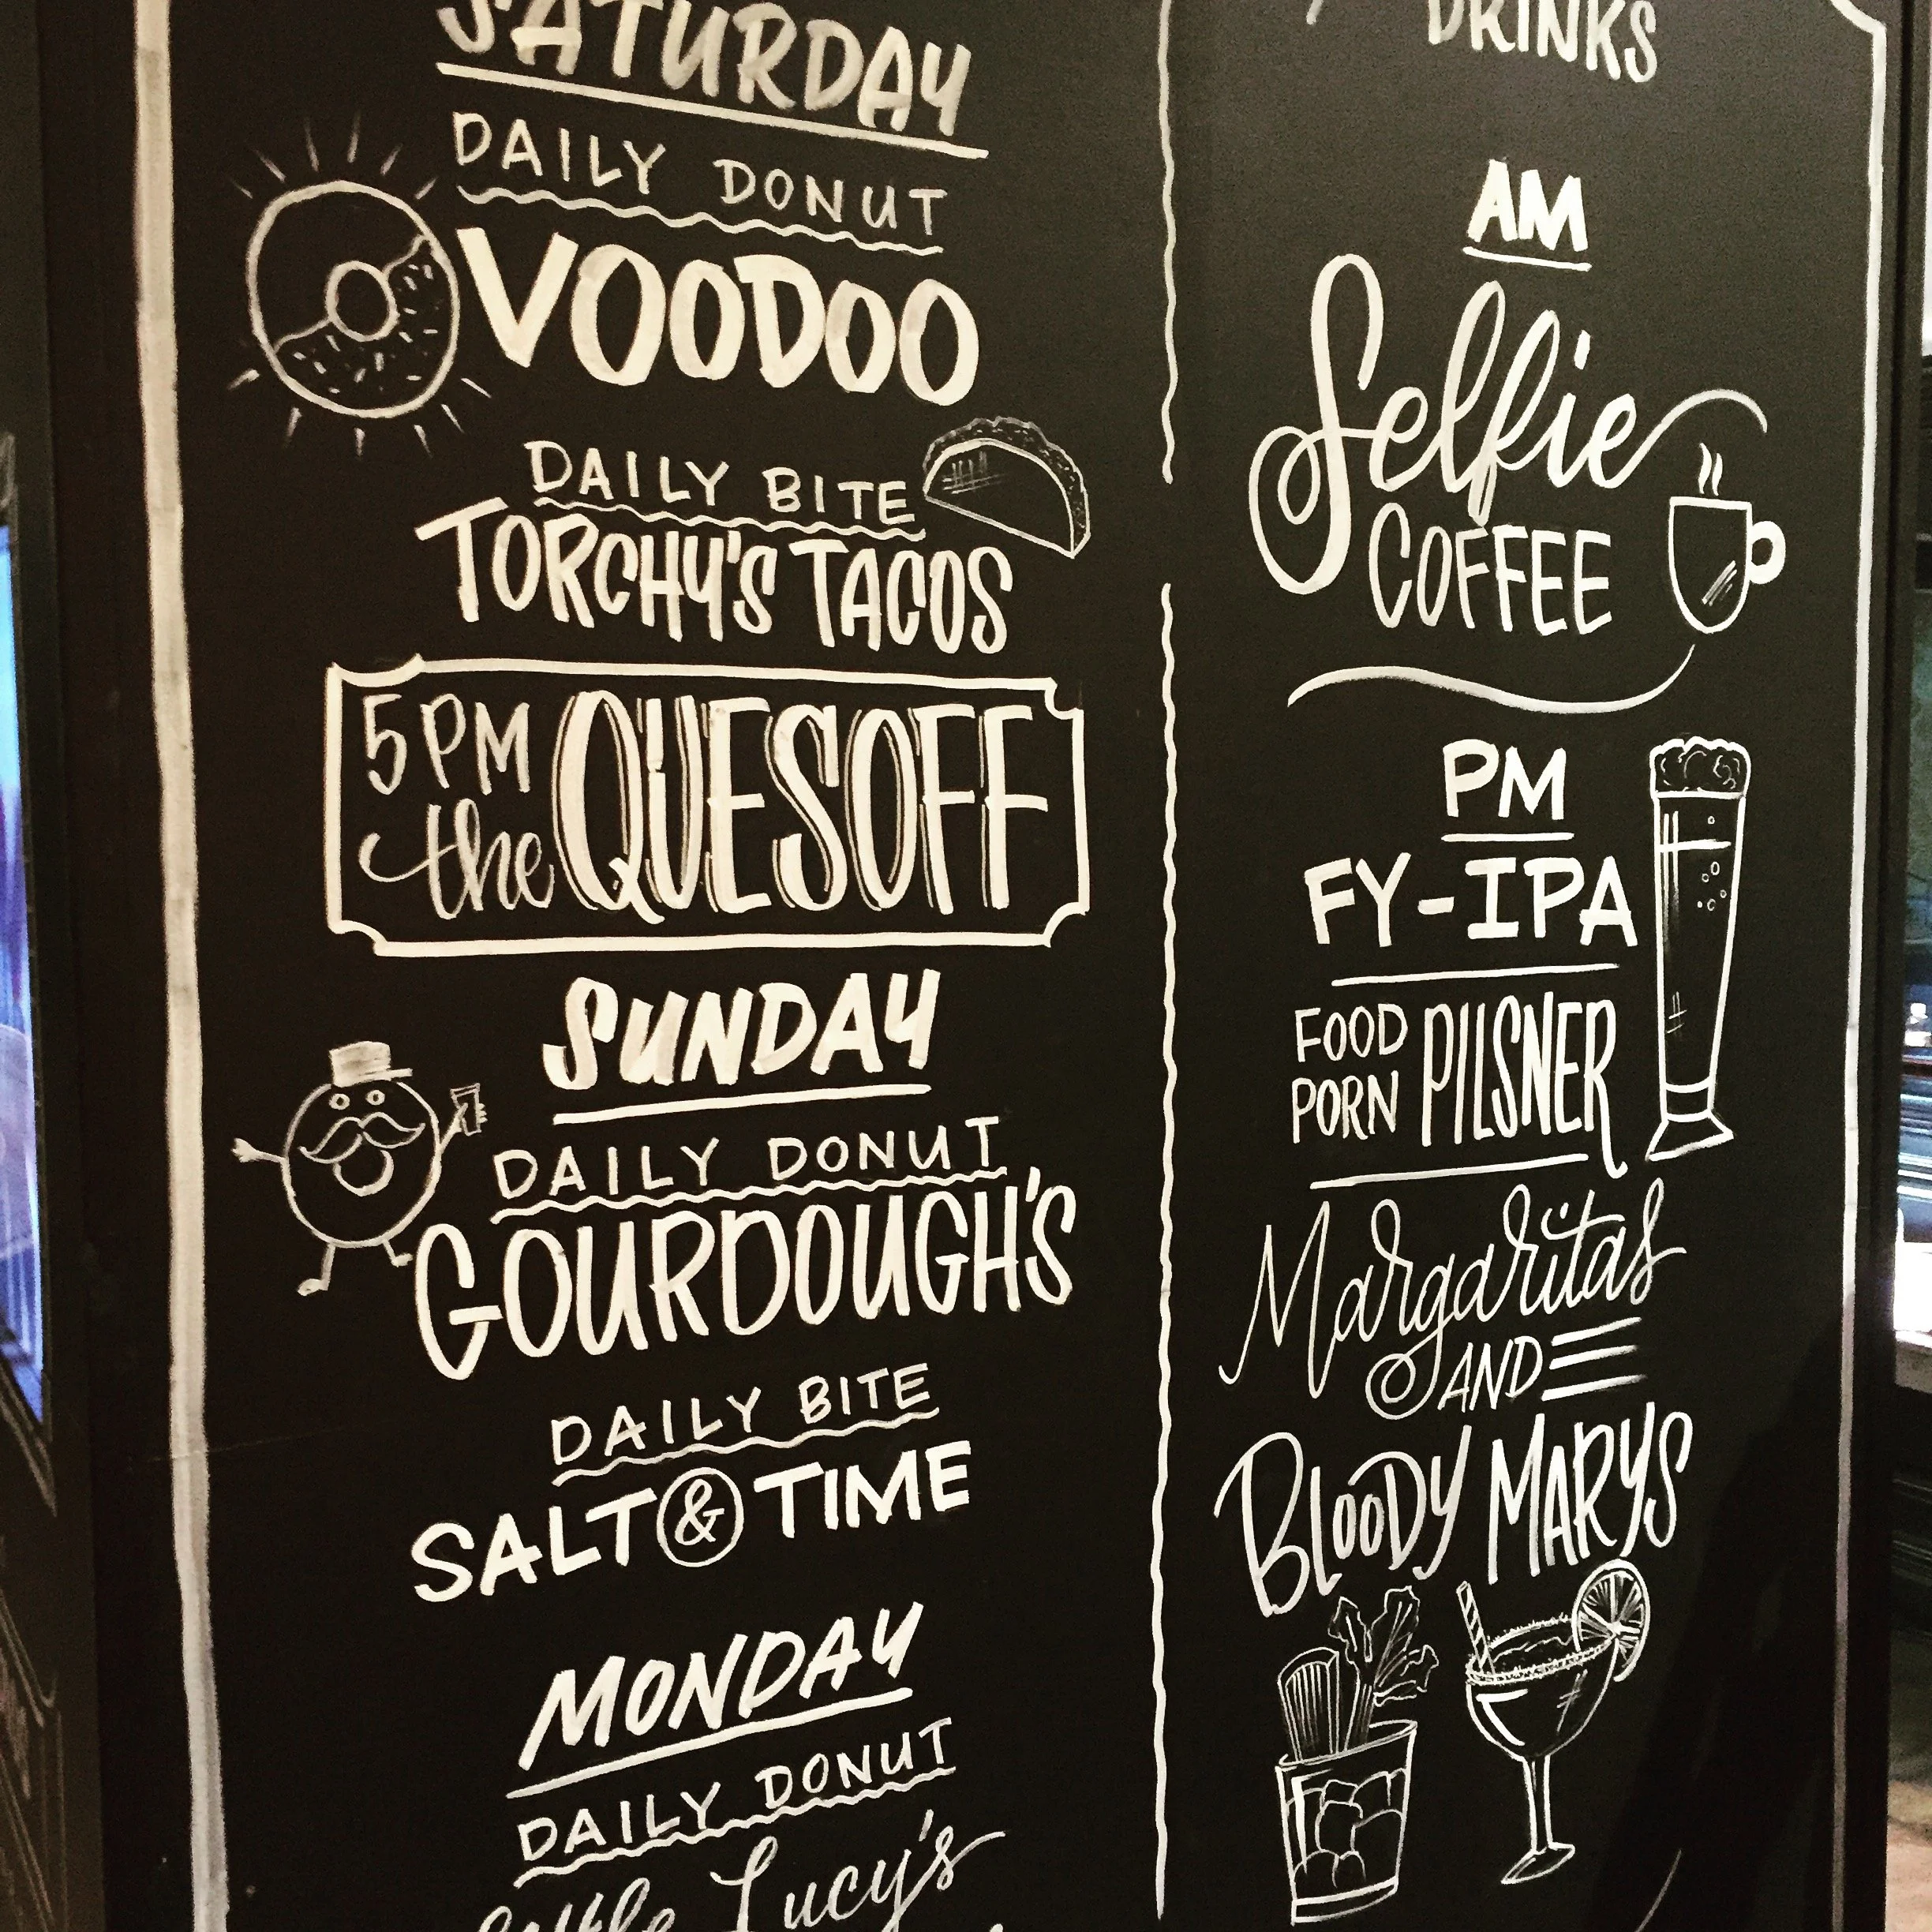 SATURDAY
DAILY DONUT
VOODOO
DAILY BITE
TORCHY'S TACOS
5PM
the QUESOFF
SUNDAY
DAILY DONUT
GOURDOUGH'S
DAILY BITE
SALT & TIME
MONDAY
DAILY DONUT
Little Lucy's
DRINKS
AM
Selfie
COFFEE
PM
FY-IPA
FOOD
PORN PILSNER
Margaritas
AND
BLOODY MARYS